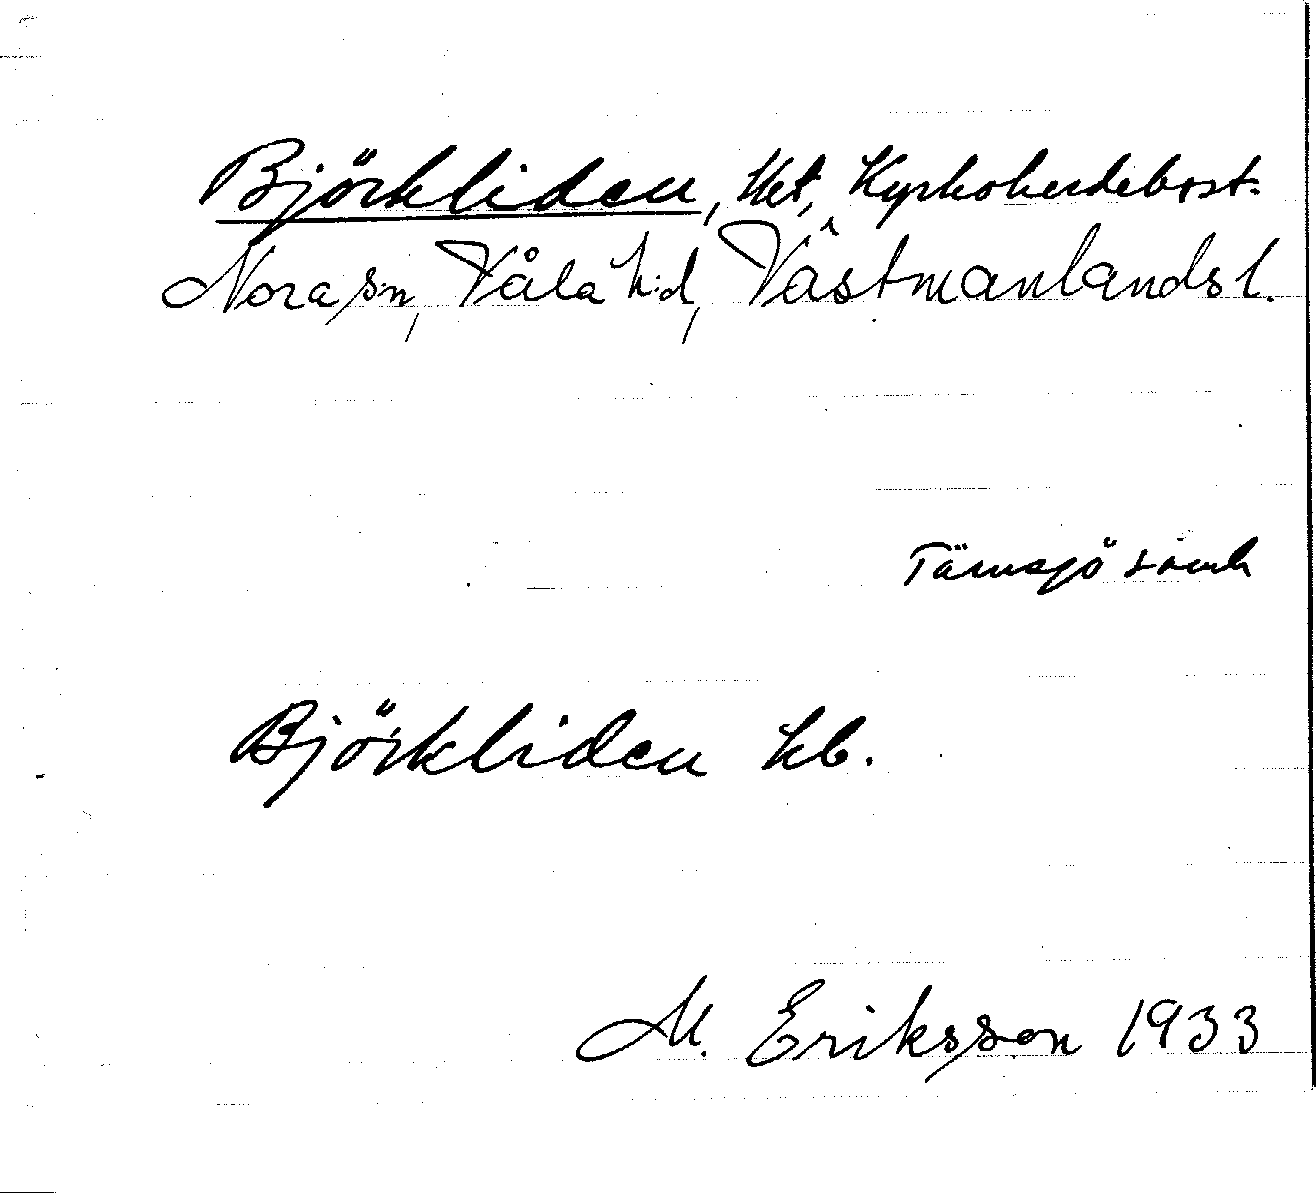 Björkliden, Ht, Kyrkoherdebost.
Nora sn, Våla h:d, Västmanlands l.
Tärnsjö samh
Björkliden hb.
M. Eriksson 1933